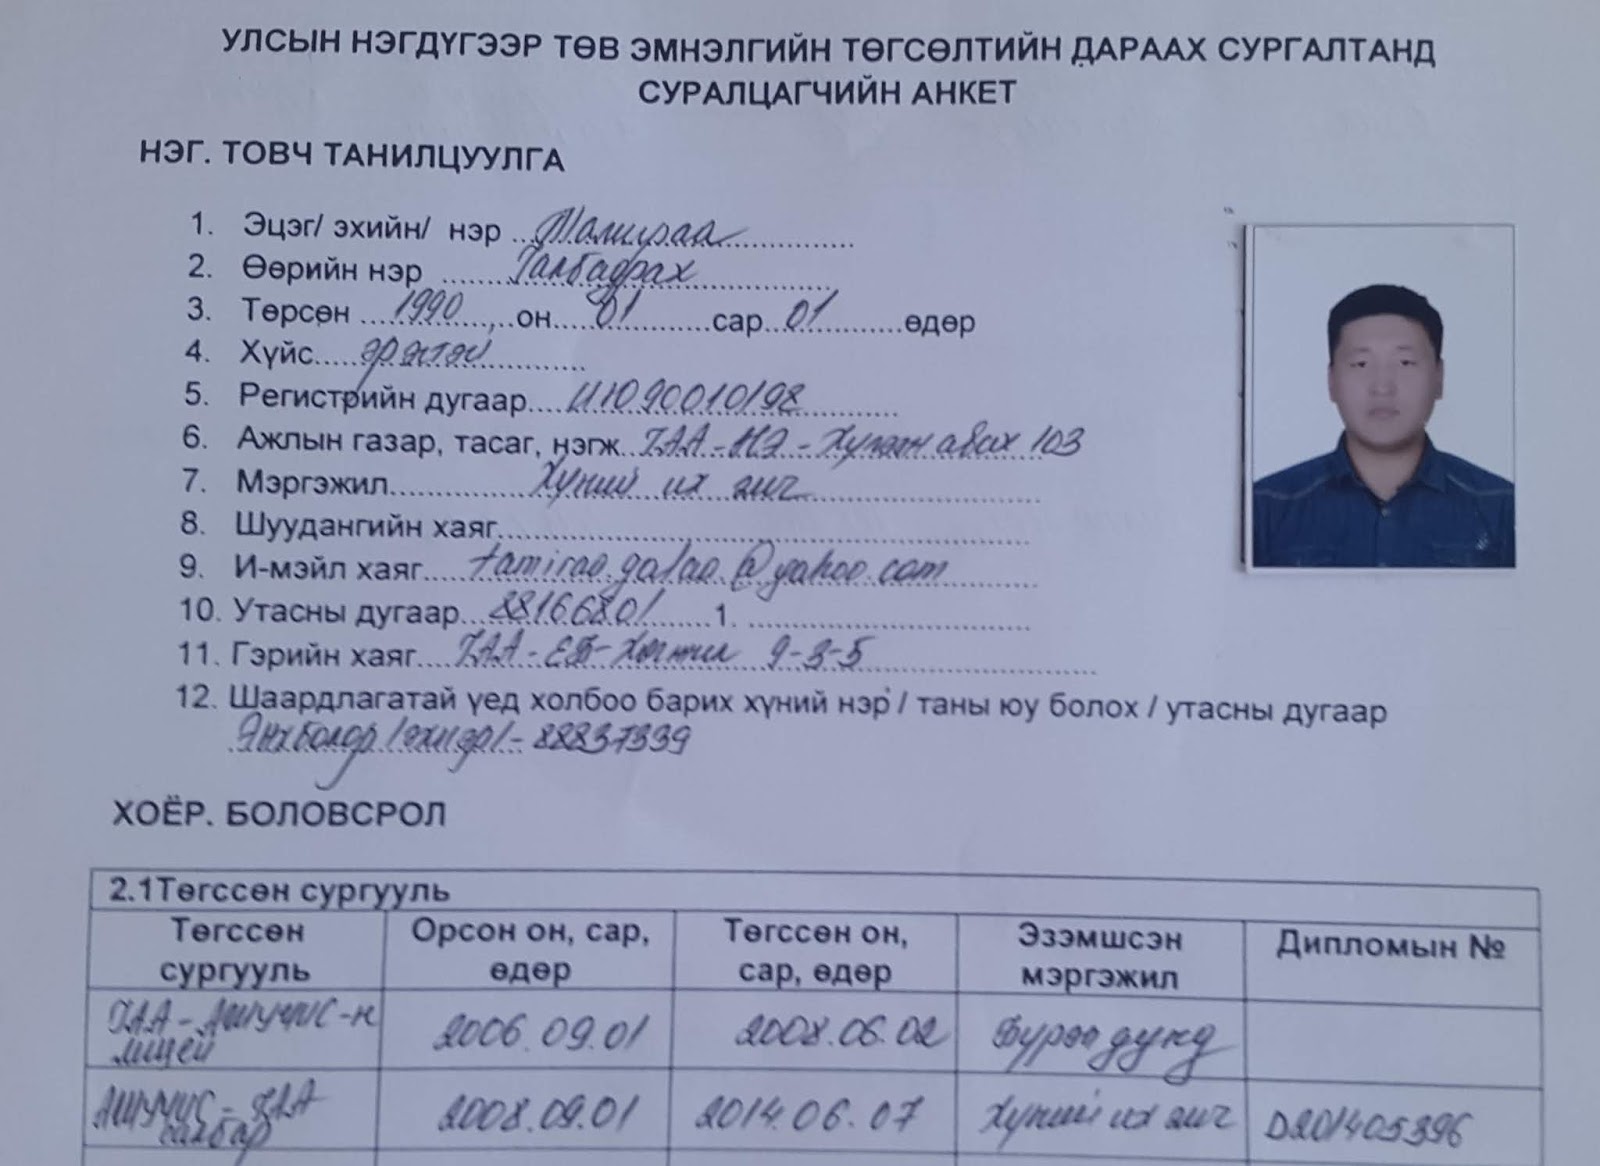 УЛСЫН НЭГДҮГЭЭР ТӨВ ЭМНЭЛГИЙН ТӨГСӨЛТИЙН ДАРААХ СУРГАЛТАНД
СУРАЛЦАГЧИЙН АНКЕТ
НЭГ. ТОВЧ ТАНИЛЦУУЛГА
1. Эцэг/ эхийн/ нэр ...Тамираа...
2. Өөрийн нэр ...Галбадрах...
3. Төрсөн ...1990...он...01...сар...01...өдөр
4. Хүйс...эрэгтэй...
5. Регистрийн дугаар...ИЮ90010198...
6. Ажлын газар, тасаг, нэгж...ДАА-НЭ- авах 103
7. Мэргэжил...Хүний их эмч...
8. Шуудангийн хаяг...
9. И-мэйл хаяг...tamiraa.galaa@yahoo.com...
10. Утасны дугаар...88166801...1. ...
11. Гэрийн хаяг...ДАА- 9-3-5...
12. Шаардлагатай үед холбоо барих хүний нэр / таны юу болох / утасны дугаар
Янхболор /эхнэр/- 88837339
ХОЁР. БОЛОВСРОЛ
2.1Төгссөн сургууль
Төгссөн сургууль Орсон он, сар, өдөр Төгссөн он, сар, өдөр Эзэмшсэн мэргэжил Дипломын №
ДАА-АШУҮИС-н лицей 2006.09.01 2008.06.02 Бүрэн дунд
АШУҮИС-ДАА салбар 2008.09.01 2014.06.07 Хүний их эмч D201405396